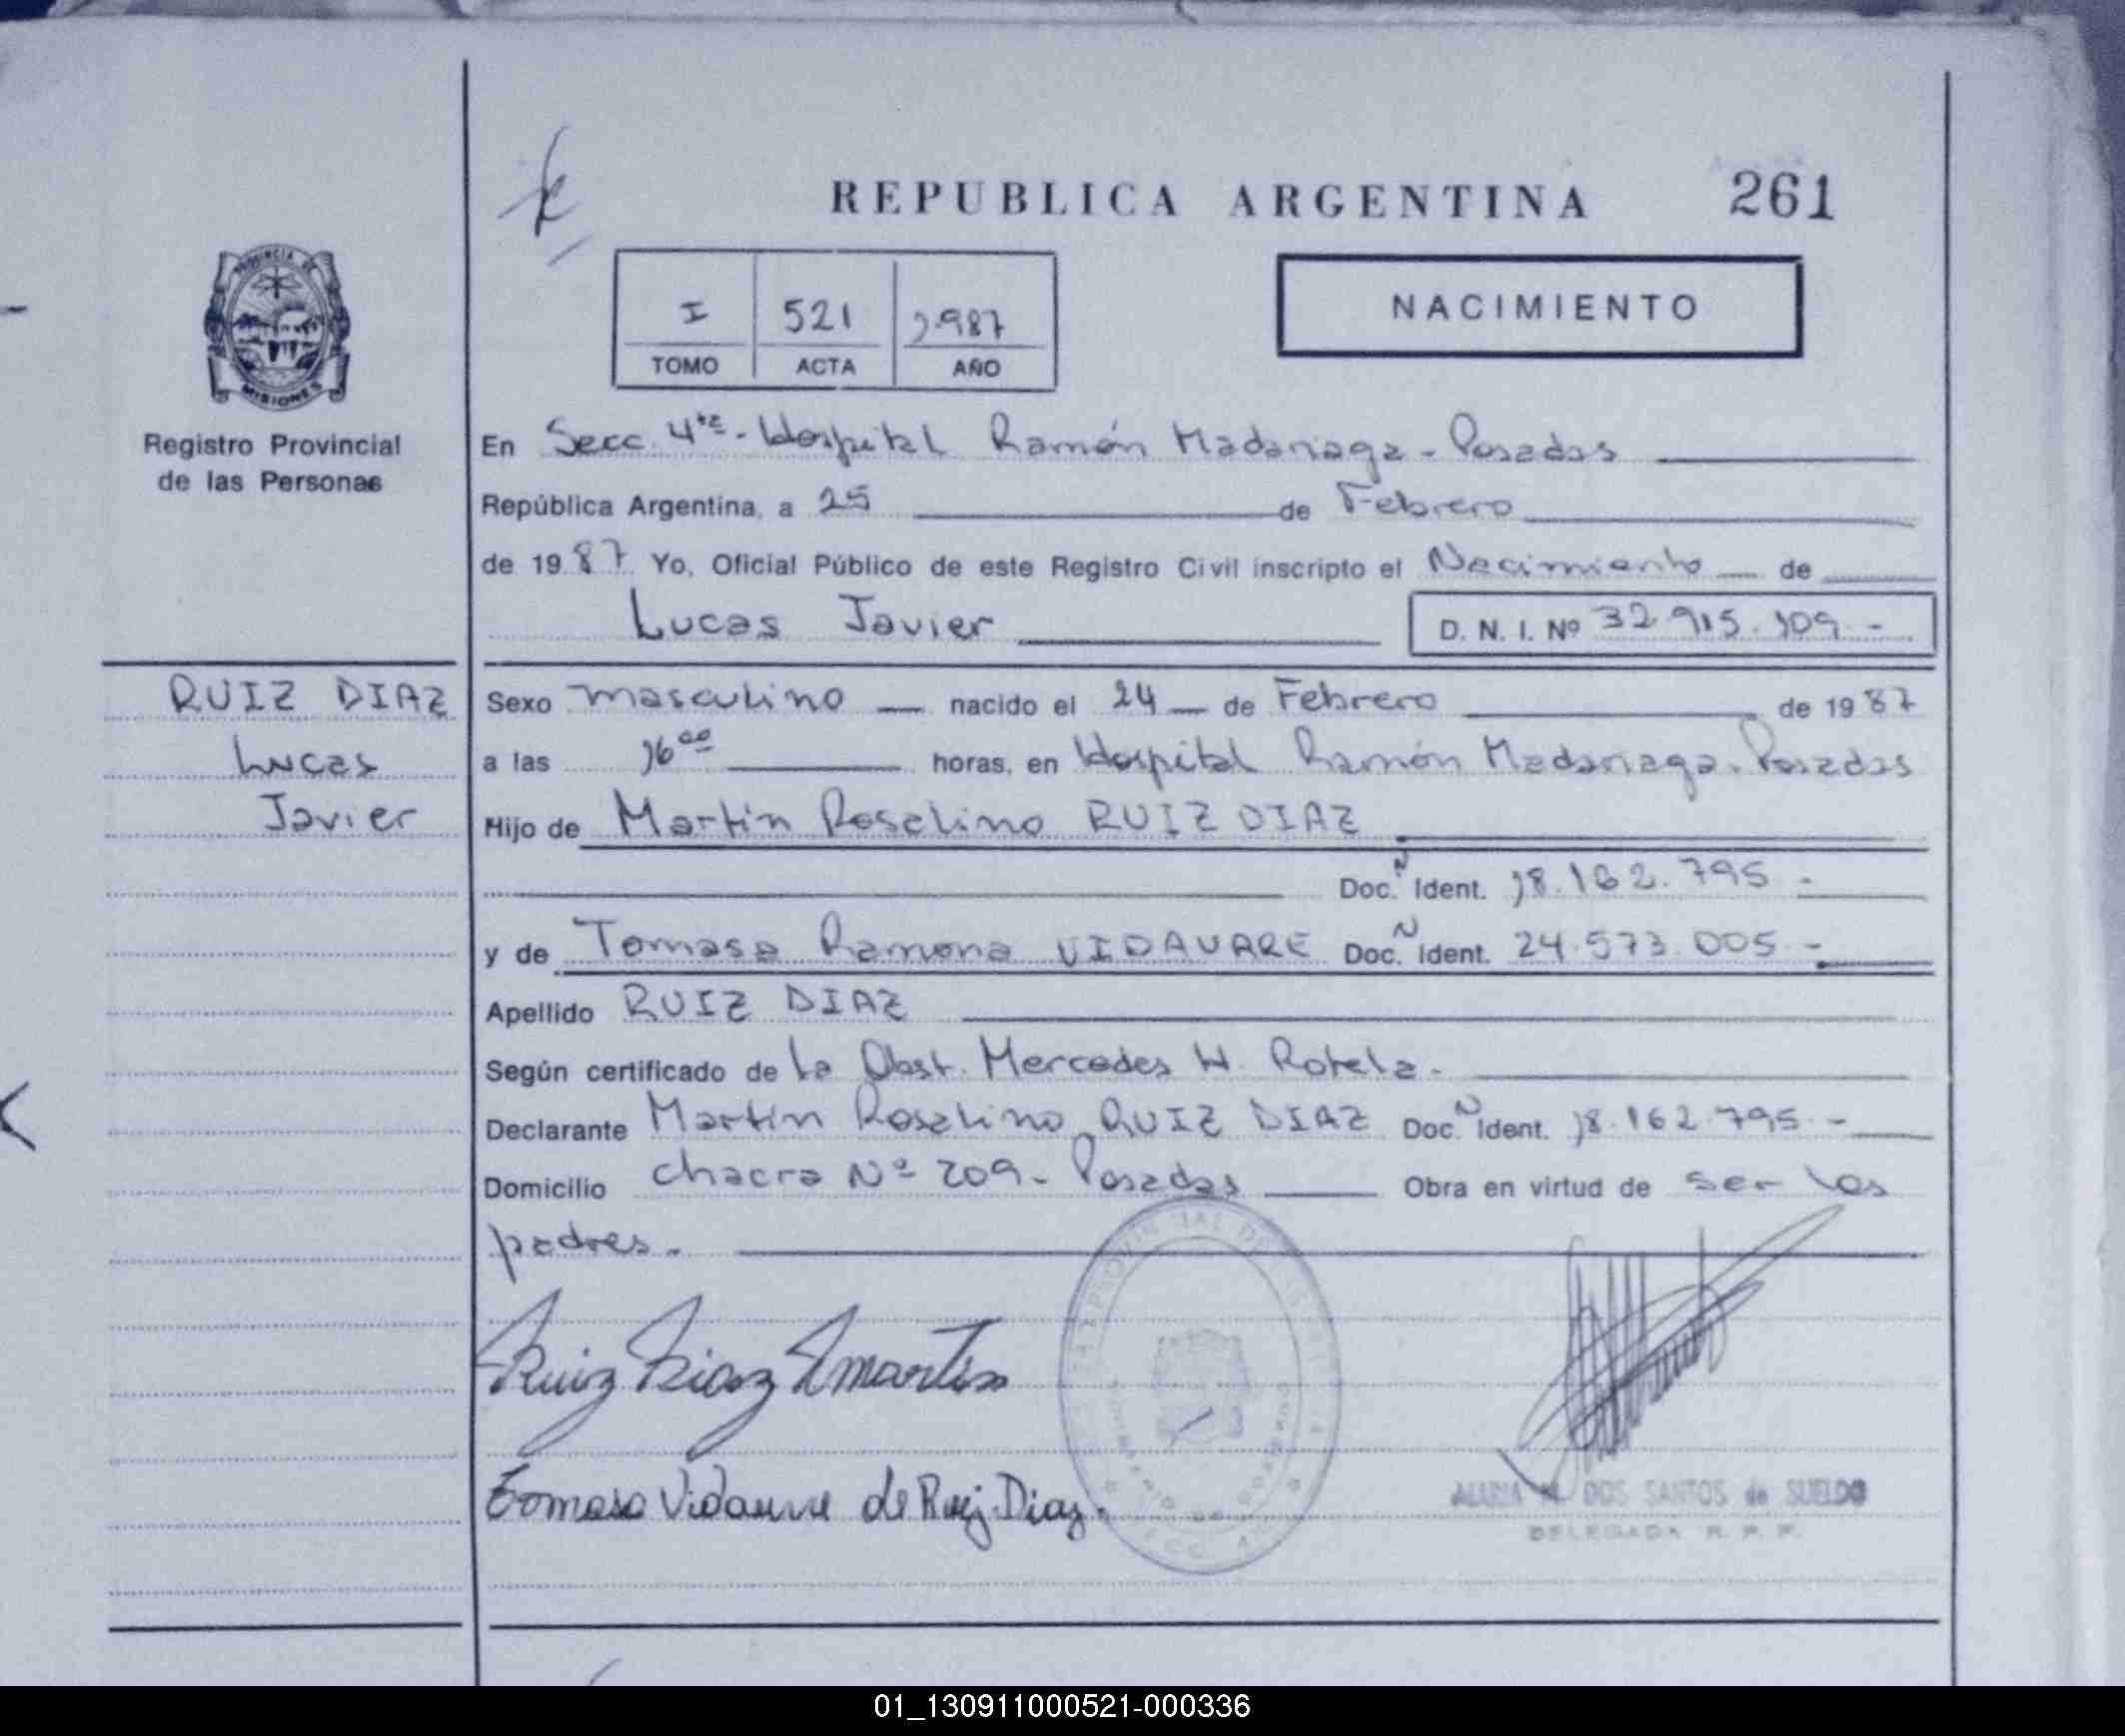 REPUBLICA ARGENTINA 261
PROVINCIA DE
MISIONES
Registro Provincial
de las Personas
I 521 1.987
TOMO ACTA AÑO
NACIMIENTO
En Secc. 4ta - Hospital Ramón Madariaga - Posadas
República Argentina, a 25 de Febrero
de 1987 Yo, Oficial Público de este Registro Civil inscripto el Nacimiento de
Lucas Javier D. N. I. Nº 32.915.109.-
RUIZ DIAZ
Lucas
Javier
Sexo masculino nacido el 24 de Febrero de 1987
a las 16 00 horas, en Hospital Ramón Madariaga. Posadas
Hijo de Martín Roselino RUIZ DIAZ
Doc. N Ident. 18.162.795.-
y de Tomasa Ramona VIDAURRE Doc. N Ident. 24.573.005.-
Apellido RUIZ DIAZ
Según certificado de la Obst. Mercedes H. Rotela.-
Declarante Martín Roselino RUIZ DIAZ Doc. N Ident. 18.162.795.-
Domicilio chacra Nº 209 - Posadas Obra en virtud de ser los
padres.
Ruiz Diaz Martin
Tomasa Vidaurre de Ruiz Diaz.
MARIA DOS SANTOS de SUELDO
DELEGADA R. P. P.
01_130911000521-000336